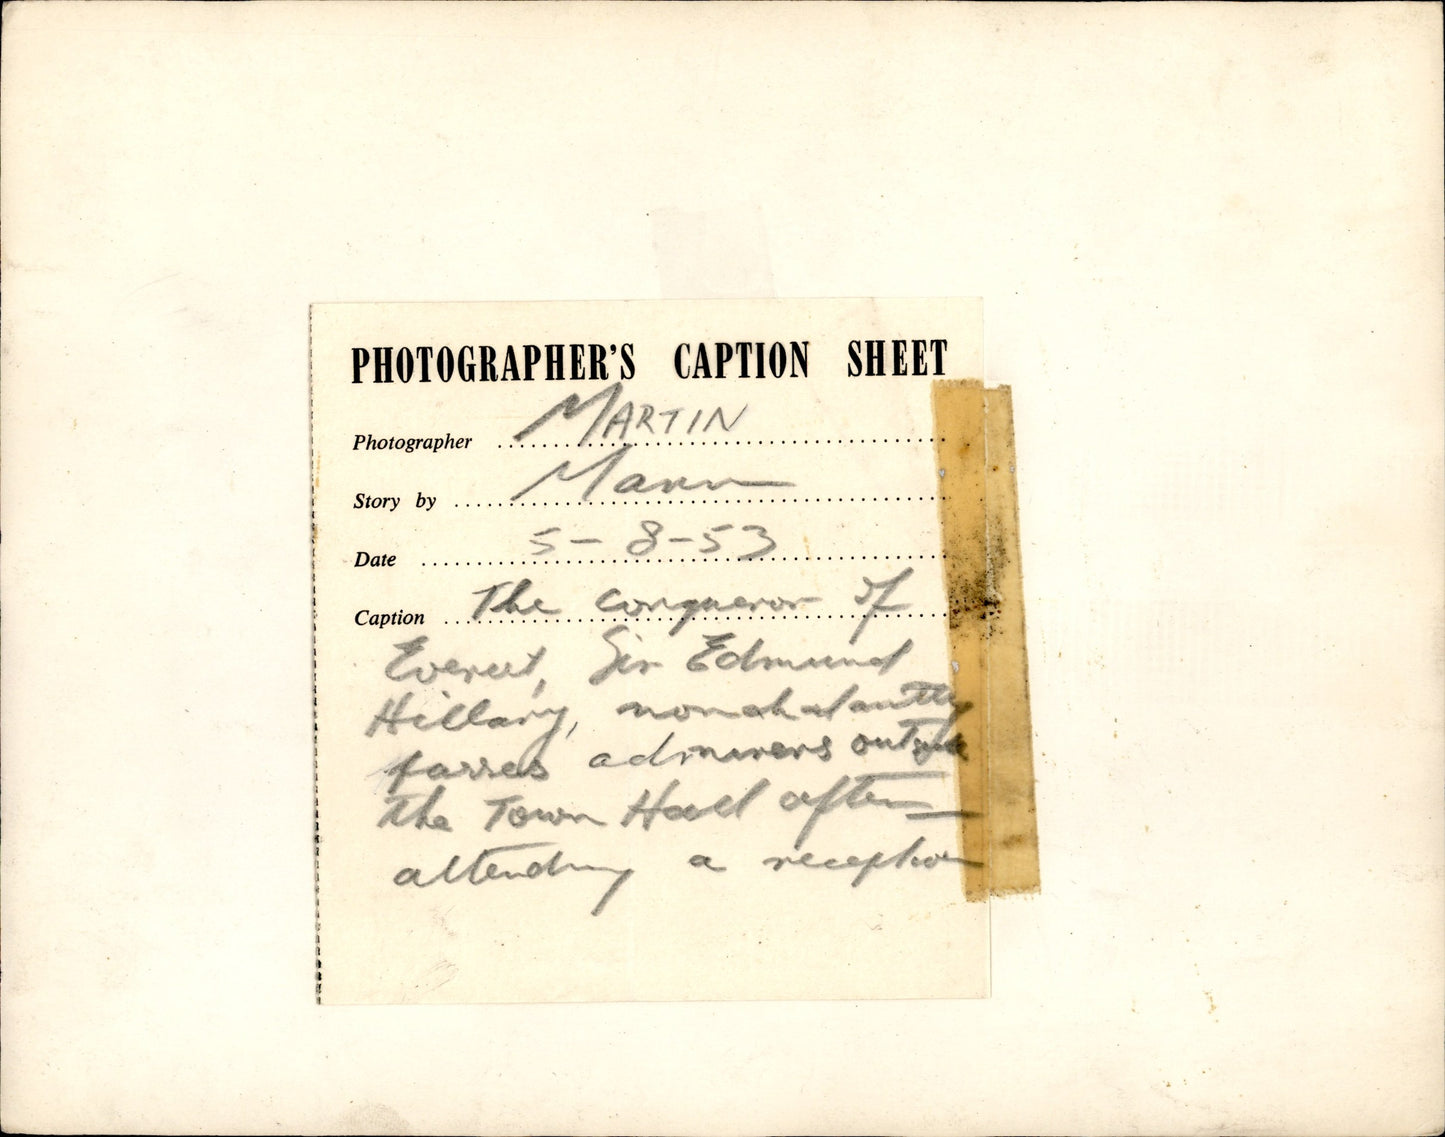 PHOTOGRAPHER'S CAPTION SHEET
Photographer MARTIN
Story by Mann
Date 5-8-53
Caption The conqueror of
Everest, Sir Edmund
Hillary, nonchalantly
passes admirers outside
the Town Hall after
attending a reception